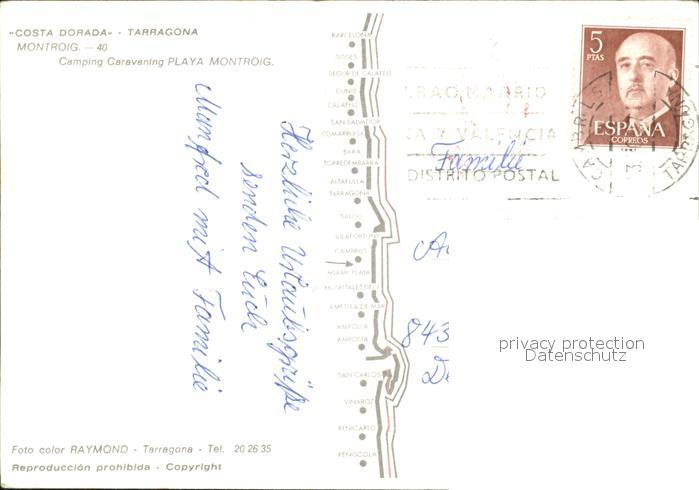 «COSTA DORADA» - TARRAGONA
MONTROIG. — 40
Camping Caravaning PLAYA MONTROIG.
Herzliche Urlaubsgrüße
senden Euch
Manfred mit Familie
BARCELONA
SITGES
SEGUR DE CALAFELL
CUNIT
CALAFELL
SAN SALVADOR
COMARRUGA
BARA
TORREDEMBARRA
ALTAFULLA
TARRAGONA
SALOU
VILAFORTUNY
CAMBRILS
MIAMI PLAYA
HOSPITALET DEL I.
AMETLLA DE MAR
AMPOLLA
AMPOSTA
SAN CARLOS
VINAROZ
BENICARLO
PEÑISCOLA
LBAO, MADRID
NA Y VALENCIA
DISTRITO POSTAL
5
PTAS
ESPAÑA
CORREOS
CAMBRILS
TARRAGONA
Familie
843
privacy protection
Datenschutz
Foto color RAYMOND - Tarragona - Tel. 20 26 35
Reproducción prohibida - Copyright